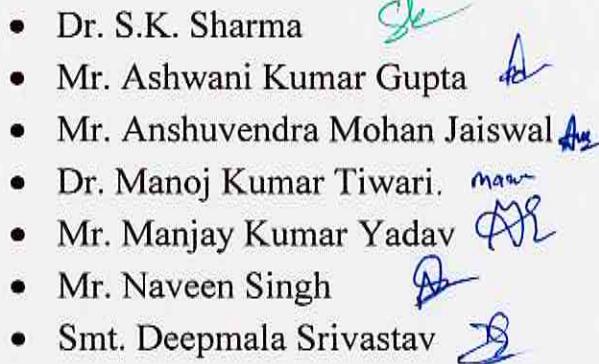 • Dr. S.K. Sharma
• Mr. Ashwani Kumar Gupta
• Mr. Anshuvendra Mohan Jaiswal
• Dr. Manoj Kumar Tiwari.
• Mr. Manjay Kumar Yadav
• Mr. Naveen Singh
• Smt. Deepmala Srivastav